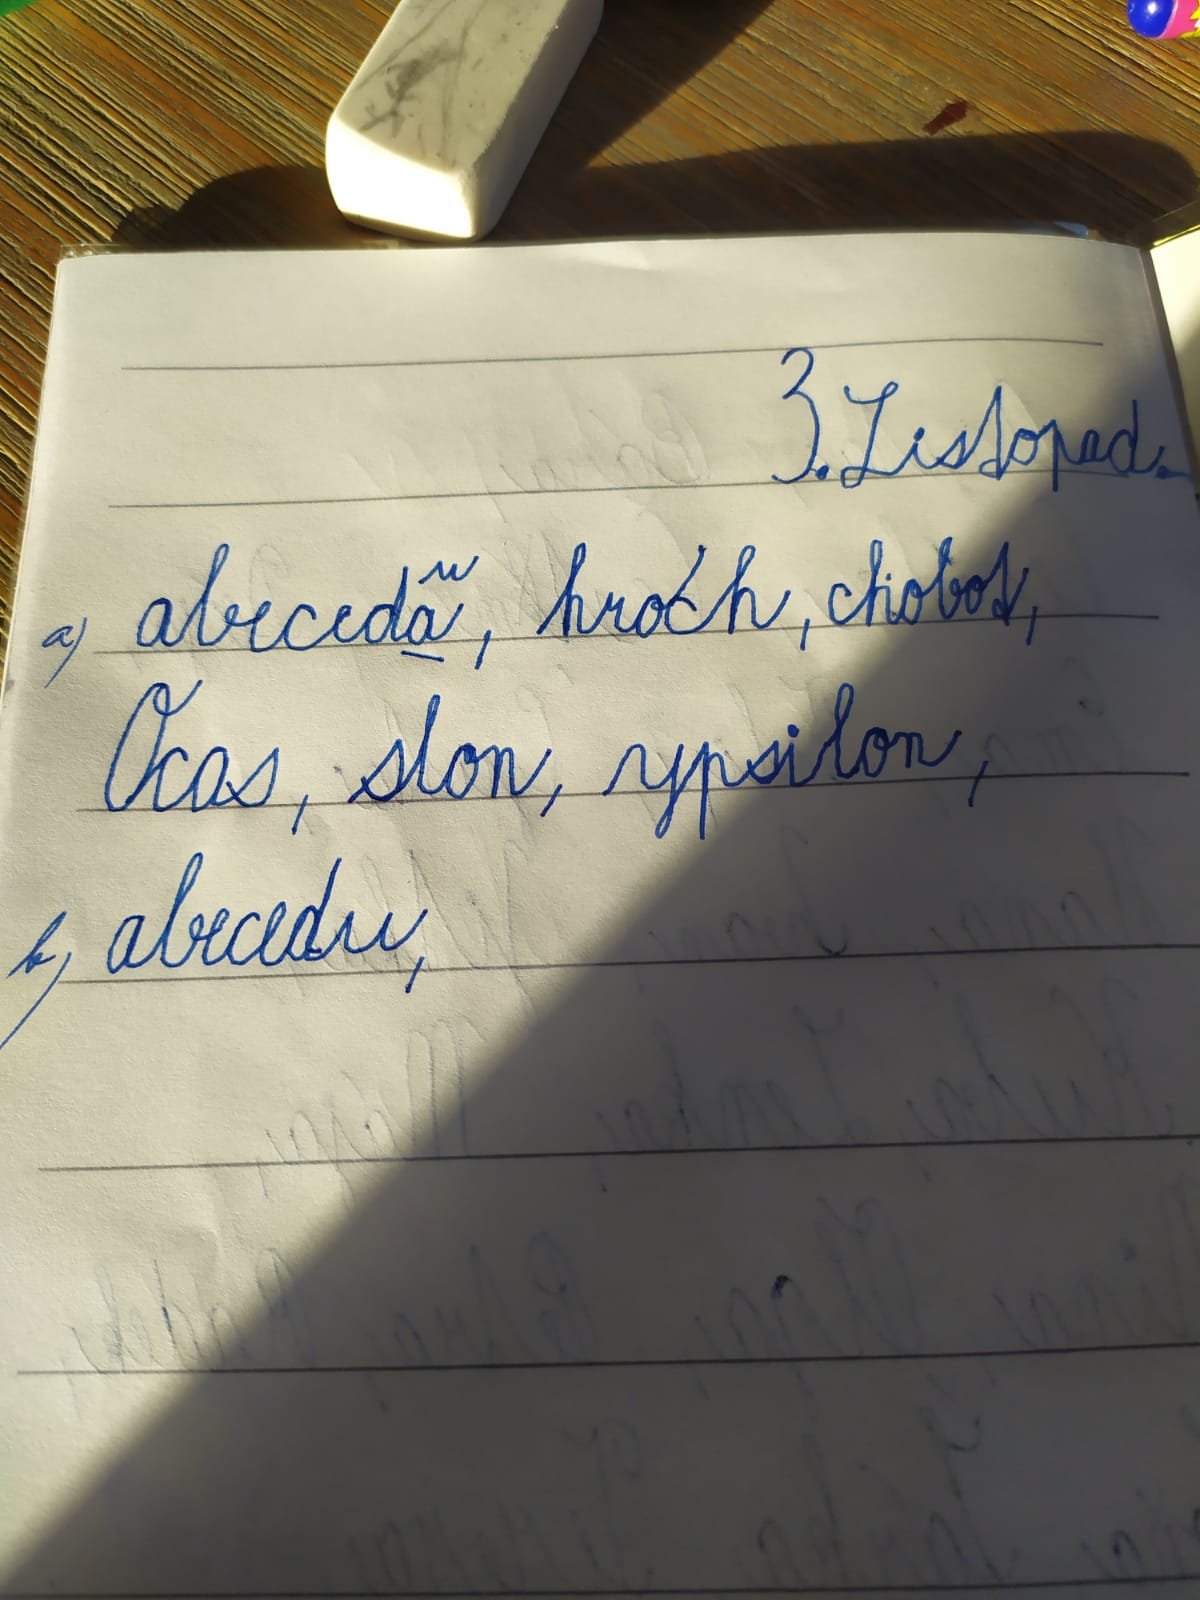 3. Listopad.
a) abeceda u, hroch, chobot,
Ocas, slon, ypsilon,
b) abecedu,